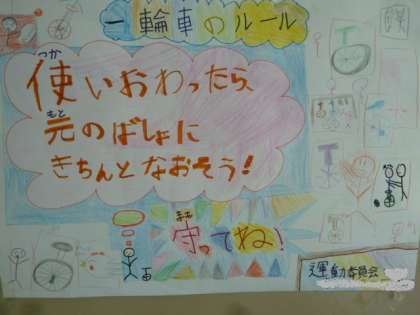 一輪車のルール
つか
使いおわったら、
もと
元のばしょに
きちんとなおそう!
まも
守ってね!
運動委員会